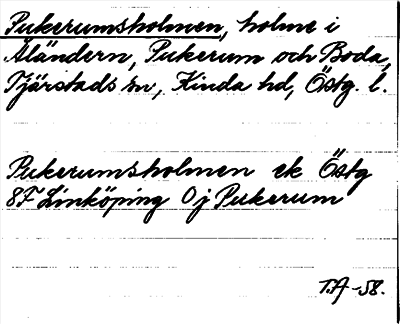 Pukerumsholmen, holme i
Åländern, Pukerum och Boda,
Tjärstads sn, Kinda hd, Östg. l.
Pukerumsholmen ek Östg
8F Linköping 0j Pukerum
T.A-58.